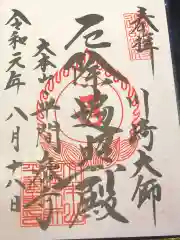 奉拝
川崎大師
厄除遍照殿
大本山
平間寺
令和元年八月十八日